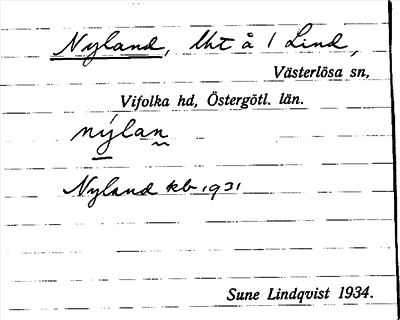 Nyland, lht å 1 Lind,
Västerlösa sn,
Vifolka hd, Östergötl. län.
nýlan
Nyland kb 1931
Sune Lindqvist 1934.